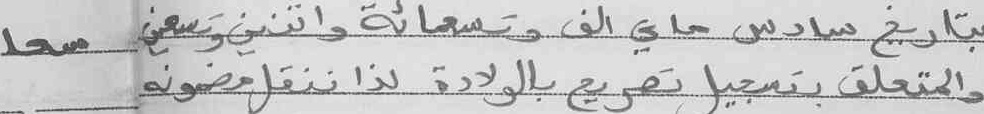 بتاريخ سادس ماي الف وتسعمائة واثنين وتسعين
والمتعلق بتسجيل تصريح بالولادة لذا ننقل مضمونه